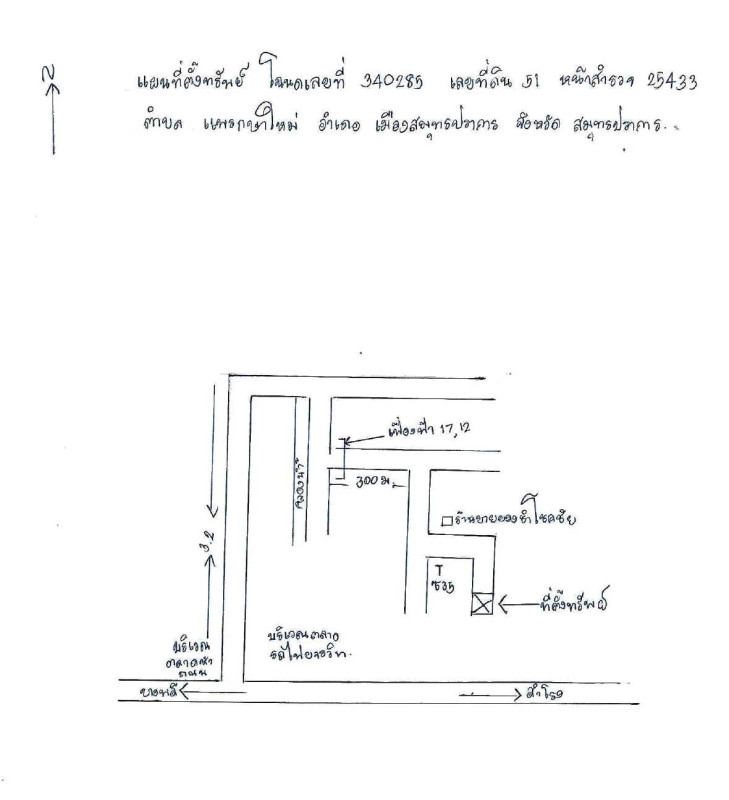 N
แผนที่ตั้งทรัพย์ โฉนดเลขที่ 340285 เลขที่ดิน 51 หน้าสำรวจ 25433
ตำบล แพรกษาใหม่ อำเภอ เมืองสมุทรปราการ จังหวัด สมุทรปราการ.
เฟื่องฟ้า 17,12
คลองน้ำ
300 ม.
ร้านขายของชำโชคชัย
3.2
T
ซ35
ที่ตั้งทรัพย์
บริเวณ
ตลาด
ถนน
บริเวณตลาด
รถไฟ
บางพลี
สำโรง